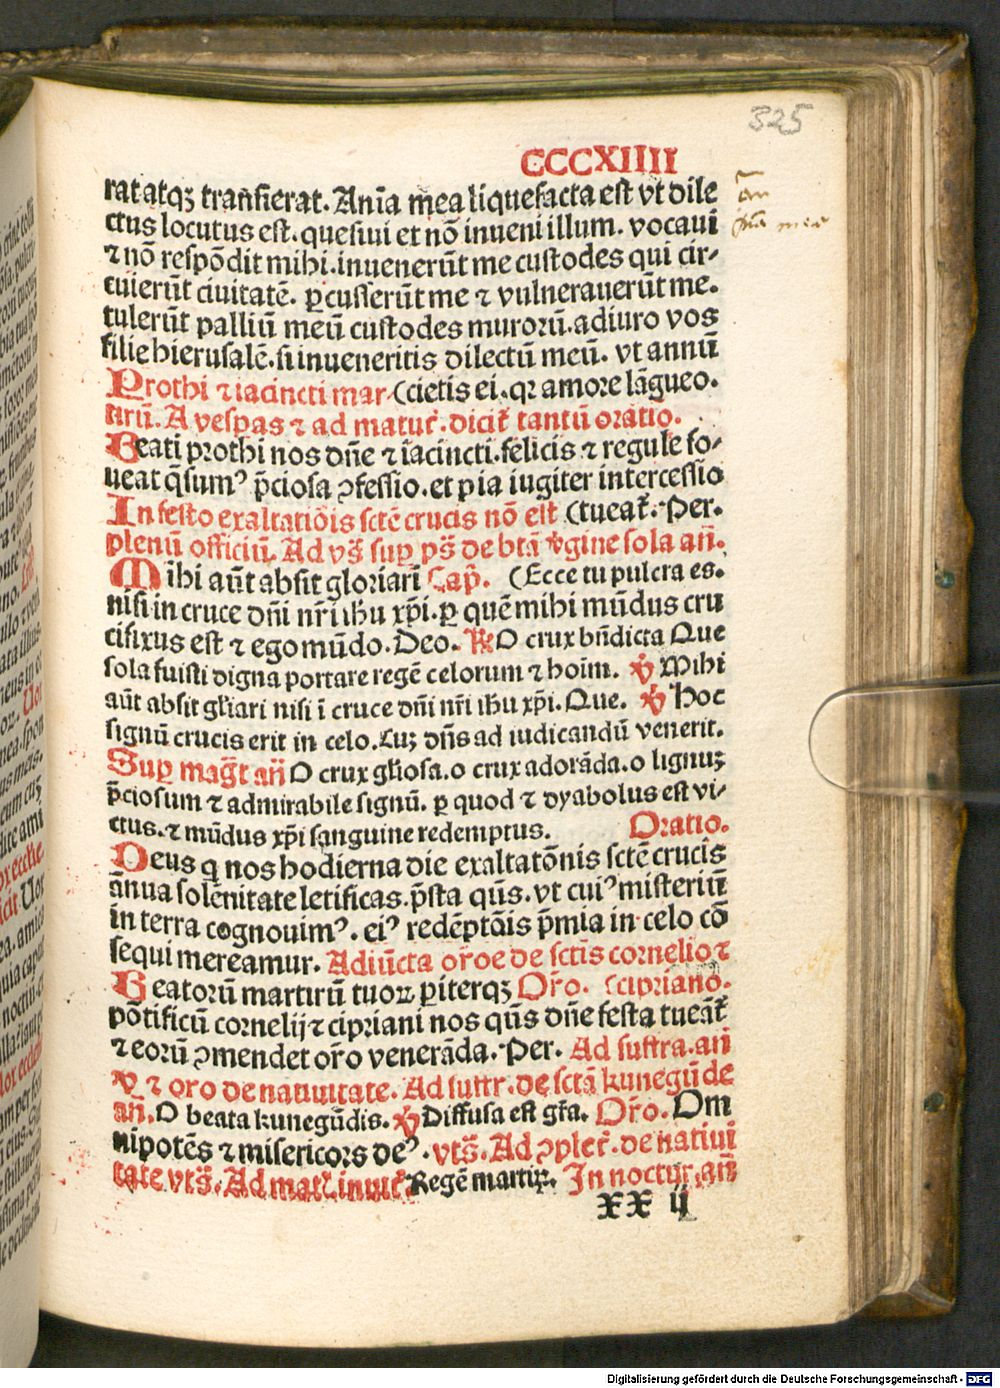 325
CCCXIIII
rat atqꝫ tranſierat. Anīa mea liquefacta eſt vt dile
ctus locutus eſt. queſiui et nō inueni illum. vocaui
⁊ nō reſpōdit mihi. inuenerūt me cuſtodes qui cir⸗
cuierūt ciuitatē. ꝑcuſſerūt me ⁊ vulnerauerūt me.
tulerūt palliū meū cuſtodes murorū. adiuro vos
filie hieruſalē. ſi inueneritis dilectū meū. vt annū
Prothi ⁊ iacincti mar (cietis ei. qꝛ amore lāgueo.
tirū. A veſpas ⁊ ad matut̃. dicit̃ tantū oratio.
Beati prothi nos dn̄e ⁊ iacincti. felicis ⁊ regule fo⸗
ueat q̄ſumꝰ p̄cioſa ꝯfeſſio. et pia iugiter interceſſio
In feſto exaltatiōis ſctē crucis nō eſt (tueat̃. Per.
plenū officiū. Ad vs̄ ſuꝑ ps̄ de btā v̄gine ſola an̄.
Mihi aūt abſit gloriari Cap̄. (Ecce tu pulcra es.
niſi in cruce dn̄i nr̄i ihu xp̄i. ꝑ quē mihi mūdus cru
cifixus eſt ⁊ ego mūdo. Deo. ℟ O crux bn̄dicta Que
ſola fuiſti digna portare regē celorum ⁊ hoīm. ℣ Mihi
aūt abſit gl̄iari niſi ī cruce dn̄i nr̄i ihu xp̄i. Que. ℣ Hoc
ſignū crucis erit in celo. Cuꝫ dn̄s ad iudicandū venerit.
Suꝑ mag̃t an̄ O crux gl̄ioſa. o crux adorāda. o lignuꝫ
p̄cioſum ⁊ admirabile ſignū. ꝑ quod ⁊ dyabolus eſt vi⸗
ctus. ⁊ mūdus xp̄i ſanguine redemptus. Oratio.
Deus q̇ nos hodierna die exaltatōnis ſctē crucis
ānua ſolēnitate letificas. p̄ſta qūs. vt cuiꝰ miſteriū
in terra cognouimꝰ. eiꝰ redēptōis p̄mia in celo cō
ſequi mereamur. Adiūcta or̄oe de ſctīs cornelio ⁊
Beatorū martirū tuoꝝ ꝑiterqꝫ Or̄o. (cipriano.
pōtificū cornelij ⁊ cipriani nos qūs dn̄e feſta tueāt̃
⁊ eorū ꝯmendet or̄o venerāda. Per. Ad ſuffra. an̄
℣ ⁊ oro de natiuitate. Ad ſuffr. de ſctā kunegūde
an̄. O beata kunegūdis. ℣ Diffuſa eſt gr̄a. Or̄o. Om
nipotēs ⁊ miſericors deꝰ. vts̄. Ad ꝯplet̃. de natiui
tate vts̄. Ad mat̃. inuit̃. Regē martiꝝ. In noctur. an̄
XX ij
Digitalisierung gefördert durch die Deutsche Forschungsgemeinschaft - DFG